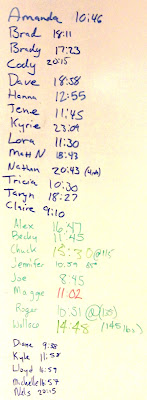 Amanda 10:46
Brad 18:11
Brady 17:23
Cody 20:15
Dave 18:58
Hanna 12:55
Jene 11:45
Kyrie 23:09
Lora 11:30
Matt N 18:43
Nathan 20:43
Tricia 10:30
Taryn 18:27
Claire 9:10
Alex 16:47
Becky 11:45
Chuck 13:30 @115
Jennifer 10:59
Joe 8:45
Maggie 11:02
Roger 10:31
Wallace 14:48 (145 lbs)
Diane 9:38
Kyle 11:58
Lloyd 11:59
Michelle 14:57
Nels 20:15